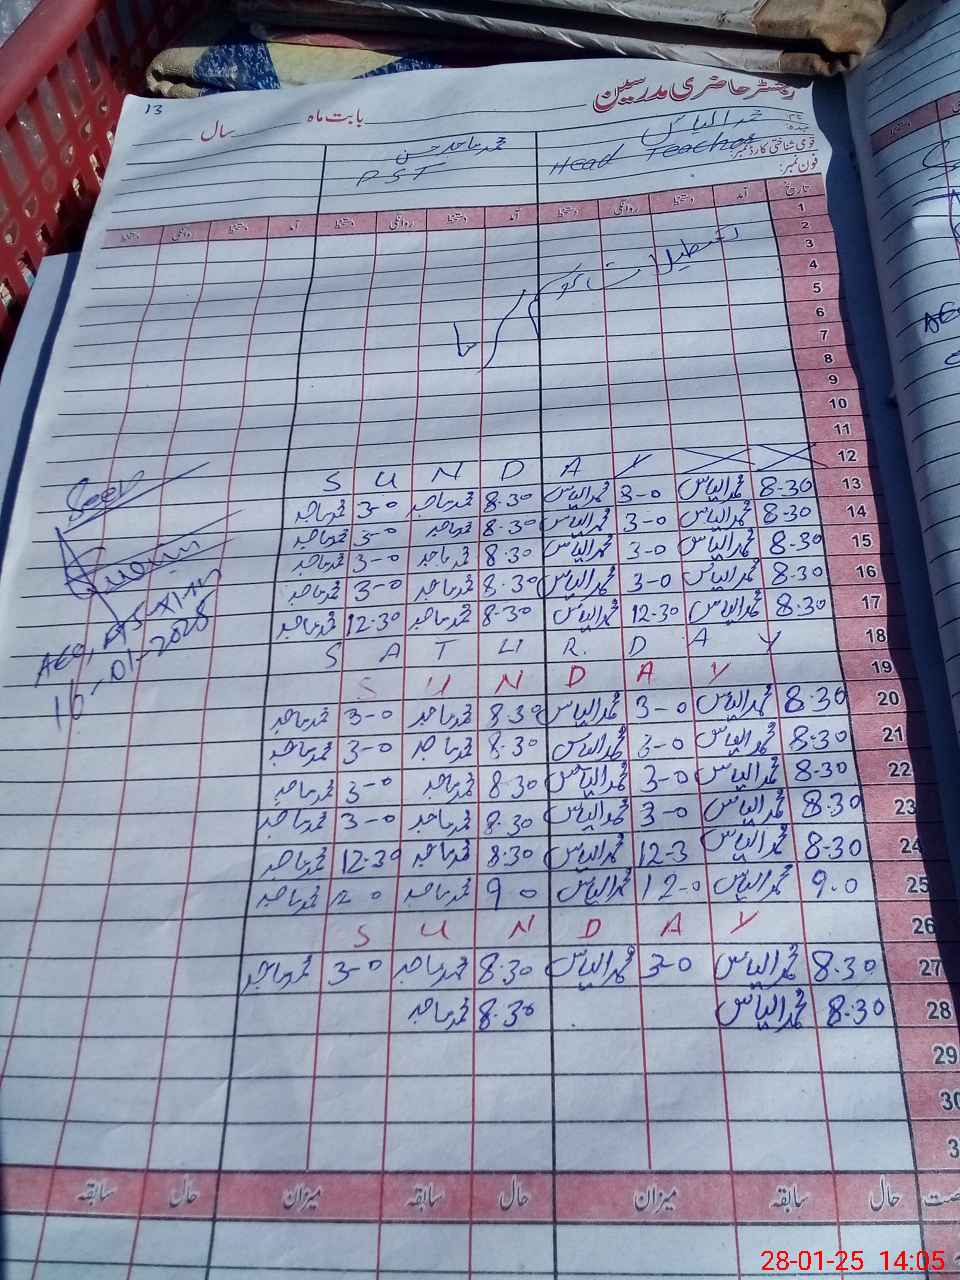 13
رجسٹر حاضری مدرسین
بابت ماہ سال
محمد الیاس محمد ساجد حسن
Head Teacher PST
قومی شناختی کارڈ نمبر:
فون نمبر:
تاریخ آمد دستخط روانگی دستخط آمد دستخط روانگی دستخط آمد دستخط روانگی دستخط
1
2
3
تعطیلات موسم سرما
4
5
6
7
8
9
10
11
12 S U N D A Y
13 8.30 محمد الیاس 3-0 محمد الیاس 8.30 محمد ساجد 3-0 محمد ساجد
14 8.30 محمد الیاس 3-0 محمد الیاس 8.30 محمد ساجد 3-0 محمد ساجد
15 8.30 محمد الیاس 3-0 محمد الیاس 8.30 محمد ساجد 3-0 محمد ساجد
16 8.30 محمد الیاس 3-0 محمد الیاس 8.30 محمد ساجد 3-0 محمد ساجد
17 8.30 محمد الیاس 12.30 محمد الیاس 8.30 محمد ساجد 12.30 محمد ساجد
18 S A T U R D A Y
19 S U N D A Y
20 8.30 محمد الیاس 3-0 محمد الیاس 8.30 محمد ساجد 3-0 محمد ساجد
21 8.30 محمد الیاس 3-0 محمد الیاس 8.30 محمد ساجد 3-0 محمد ساجد
22 8.30 محمد الیاس 3-0 محمد الیاس 8.30 محمد ساجد 3-0 محمد ساجد
23 8.30 محمد الیاس 3-0 محمد الیاس 8.30 محمد ساجد 3-0 محمد ساجد
24 8.30 محمد الیاس 12-3 محمد الیاس 8.30 محمد ساجد 12.30 محمد ساجد
25 9.0 محمد الیاس 12-0 محمد الیاس 9 0 محمد ساجد محمد ساجد
26 S U N D A Y
27 8.30 محمد الیاس 3-0 محمد الیاس 8.30 محمد ساجد 3-0 محمد ساجد
28 8.30 محمد الیاس 8.30 محمد ساجد
29
30
3
Seen
16-01-2025
حال سابقہ میزان حال سابقہ میزان حال سابقہ
28-01-25 14:05